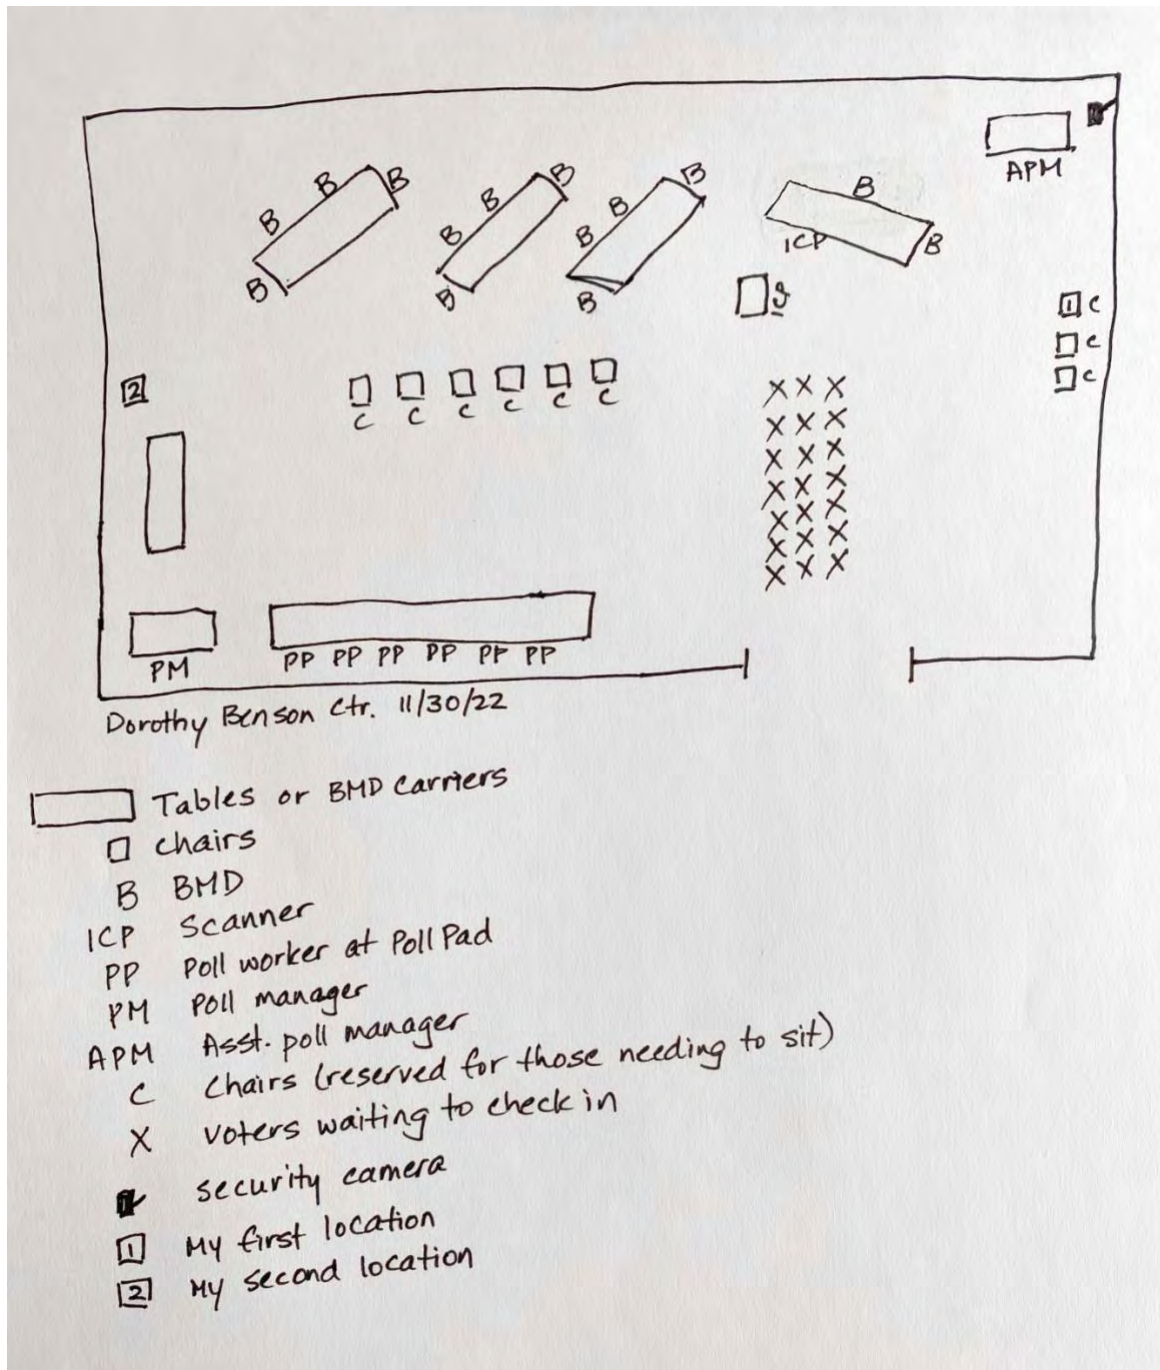 APM
B B B B
B B B B
B B B B
B
ICP B
1 C
C
C
2
C C C C C C
X X X
X X X
X X X
X X X
X X X
X X X
X X X
PM
PP PP PP PP PP PP
Dorothy Benson Ctr. 11/30/22
Tables or BMD carriers
chairs
B BMD
ICP Scanner
PP Poll worker at Poll Pad
PM Poll manager
APM Asst. poll manager
C Chairs (reserved for those needing to sit)
X Voters waiting to check in
security camera
1 My first location
2 My second location